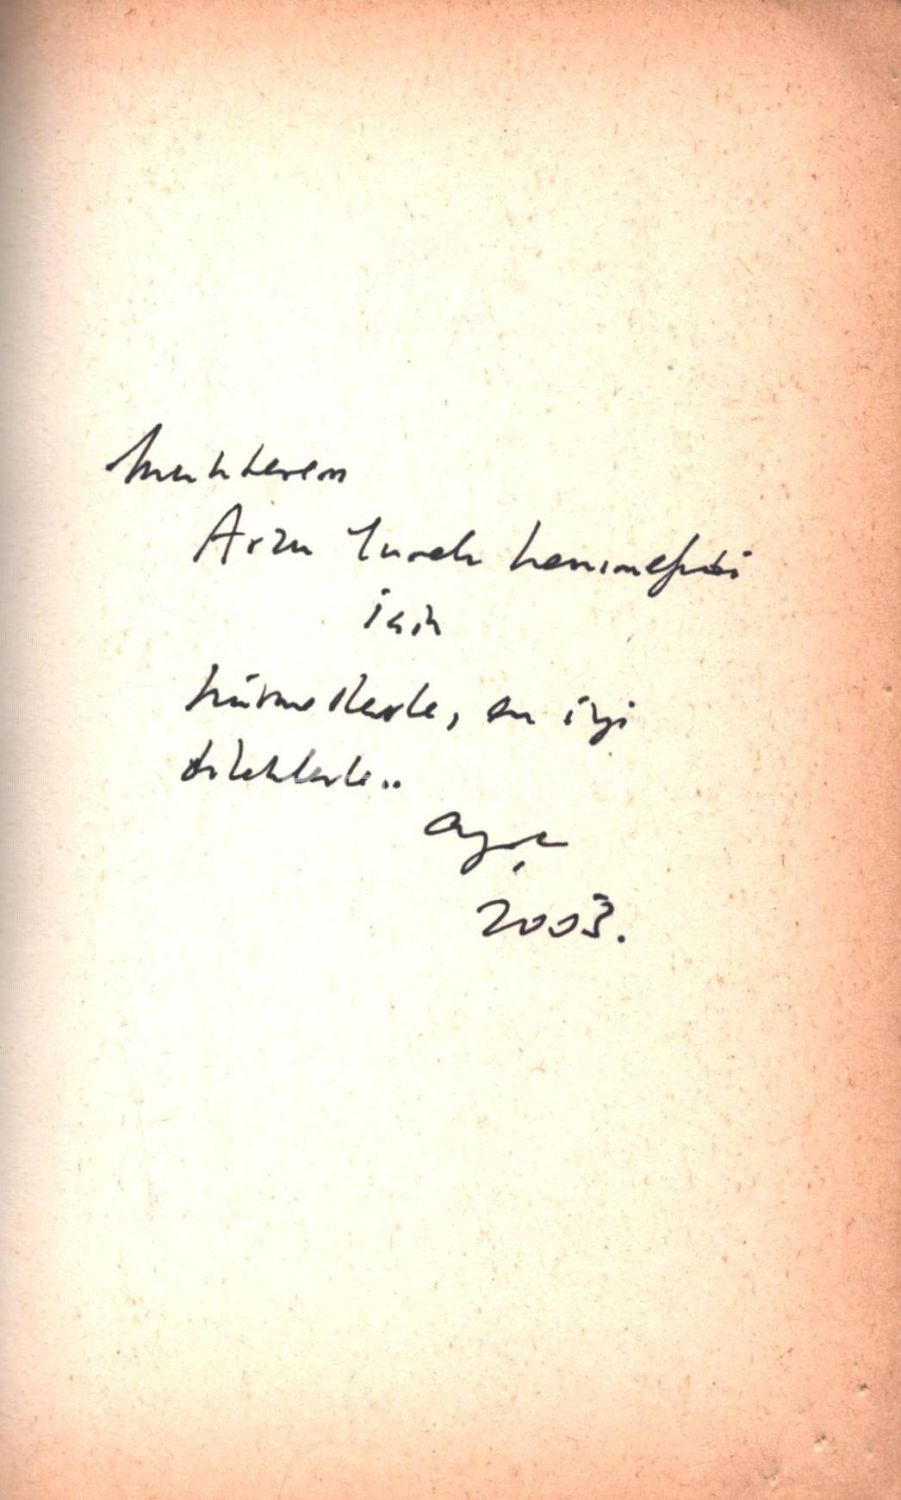 Muhterem
Arzu hanımefendi
için
hürmetlerle, en iyi
dileklerle..
2003.